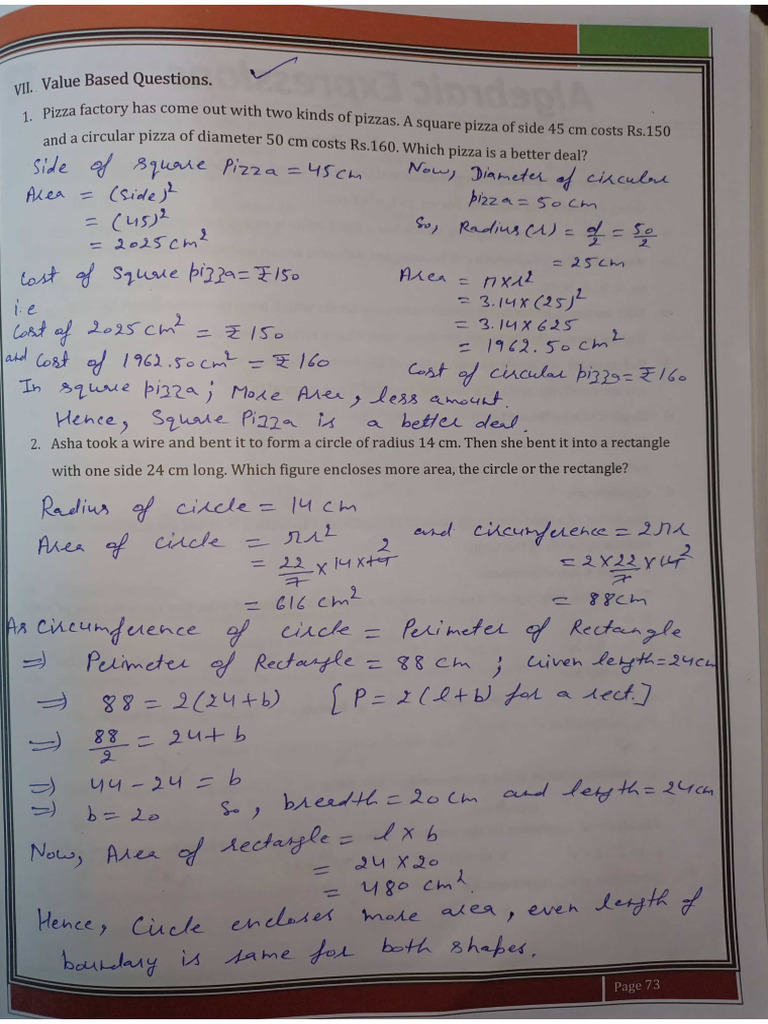 VII. Value Based Questions.
1. Pizza factory has come out with two kinds of pizzas. A square pizza of side 45 cm costs Rs.150
and a circular pizza of diameter 50 cm costs Rs.160. Which pizza is a better deal?
Side of square Pizza = 45 cm
Area = (Side)²
= (45)²
= 2025 cm²
Cost of Square pizza = ₹150
i.e
Cost of 2025 cm² = ₹150
and Cost of 1962.50 cm² = ₹160
Now, Diameter of circular
pizza = 50 cm
So, Radius (r) = d/2 = 50/2
= 25 cm
Area = π×r²
= 3.14×(25)²
= 3.14×625
= 1962.50 cm²
Cost of circular pizza = ₹160
In square pizza; More Area, less amount.
Hence, Square Pizza is a better deal.
2. Asha took a wire and bent it to form a circle of radius 14 cm. Then she bent it into a rectangle
with one side 24 cm long. Which figure encloses more area, the circle or the rectangle?
Radius of circle = 14 cm
Area of circle = πr²
= 22/7 × 14 × 14 2
= 616 cm²
and circumference = 2πr
= 2×22/7×14 2
= 88 cm
As Circumference of circle = Perimeter of Rectangle
⇒ Perimeter of Rectangle = 88 cm ; Given length = 24 cm
⇒ 88 = 2(24+b) [P = 2(l+b) for a rect.]
⇒ 88/2 = 24+b
⇒ 44-24 = b
⇒ b = 20 So, breadth = 20 cm and length = 24 cm
Now, Area of rectangle = l × b
= 24×20
= 480 cm².
Hence, Circle encloses more area, even length of
boundary is same for both shapes.
Page 73